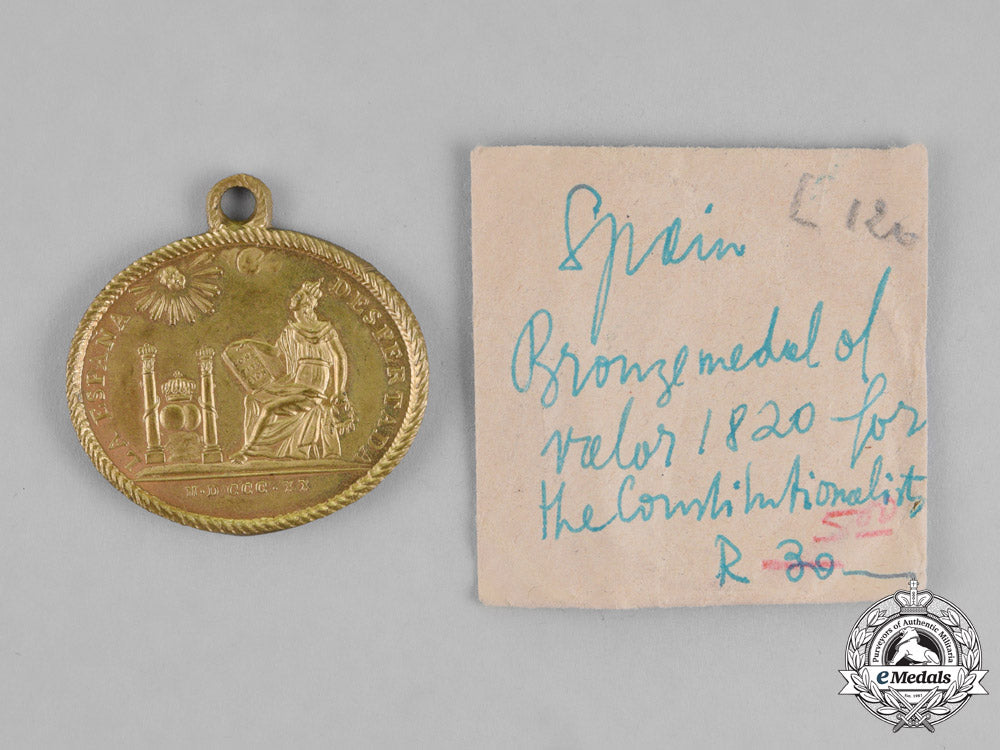 LA ESPAÑA DESPERTADA
M·DCCC·XX
[ 120
Spain
Bronze medal of
valor 1820 for
the Constitutionalists
500
R 30
Purveyors of Authentic Militaria
eMedals
Est. 1967